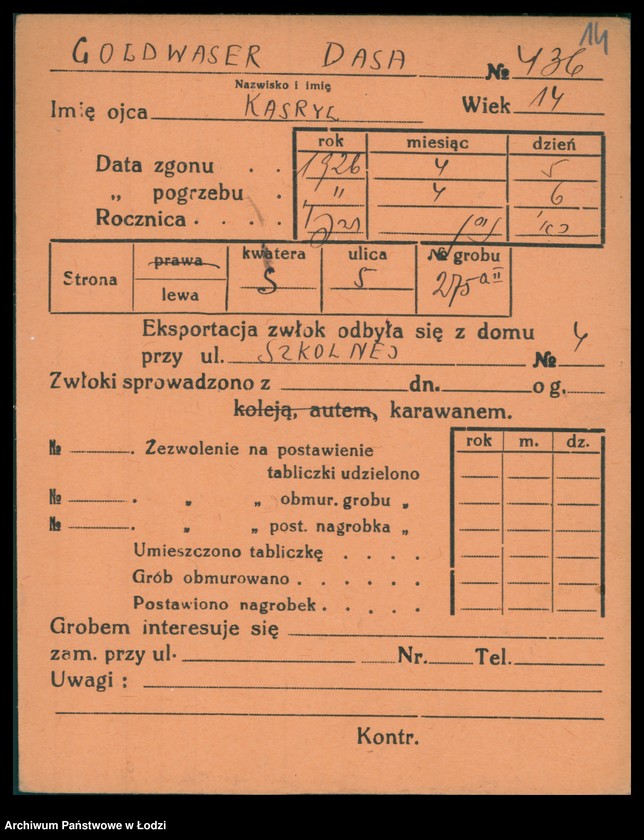 14
GOLDWASER DASA № 436
Nazwisko i imię
Imię ojca KASRYL Wiek 14
rok miesiąc dzień
Data zgonu . . 1926 4 5
„ pogrzebu . " 4 6
Rocznica . . . .
Strona prawa kwatera ulica № grobu
lewa S 5 275 a II
Eksportacja zwłok odbyła się z domu
przy ul. SZKOLNEJ № 4
Zwłoki sprowadzono z dn. o g.
koleją, autem, karawanem.
rok m. dz.
№ . Zezwolenie na postawienie
tabliczki udzielono
№ . „ „ obmur. grobu „
№ . „ „ post. nagrobka „
Umieszczono tabliczkę . . . .
Grób obmurowano . . . . .
Postawiono nagrobek . . . .
Grobem interesuje się
zam. przy ul. Nr. Tel.
Uwagi :
Kontr.
Archiwum Państwowe w Łodzi